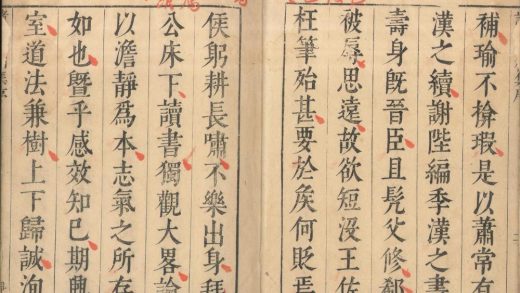 補瑜不揜瑕是以蕭常有
漢之續謝陛編季漢之書
壽身旣晉臣且髡父修郄
被辱思遠故欲短沒王佐
枉筆殆甚要於矦何貶焉
矦躬耕長嘯不樂出身拜
公床下讀書獨觀大畧論
以澹靜爲本志氣之所存
如也暨乎感效知巳期興
室道法兼樹上下歸誠洵